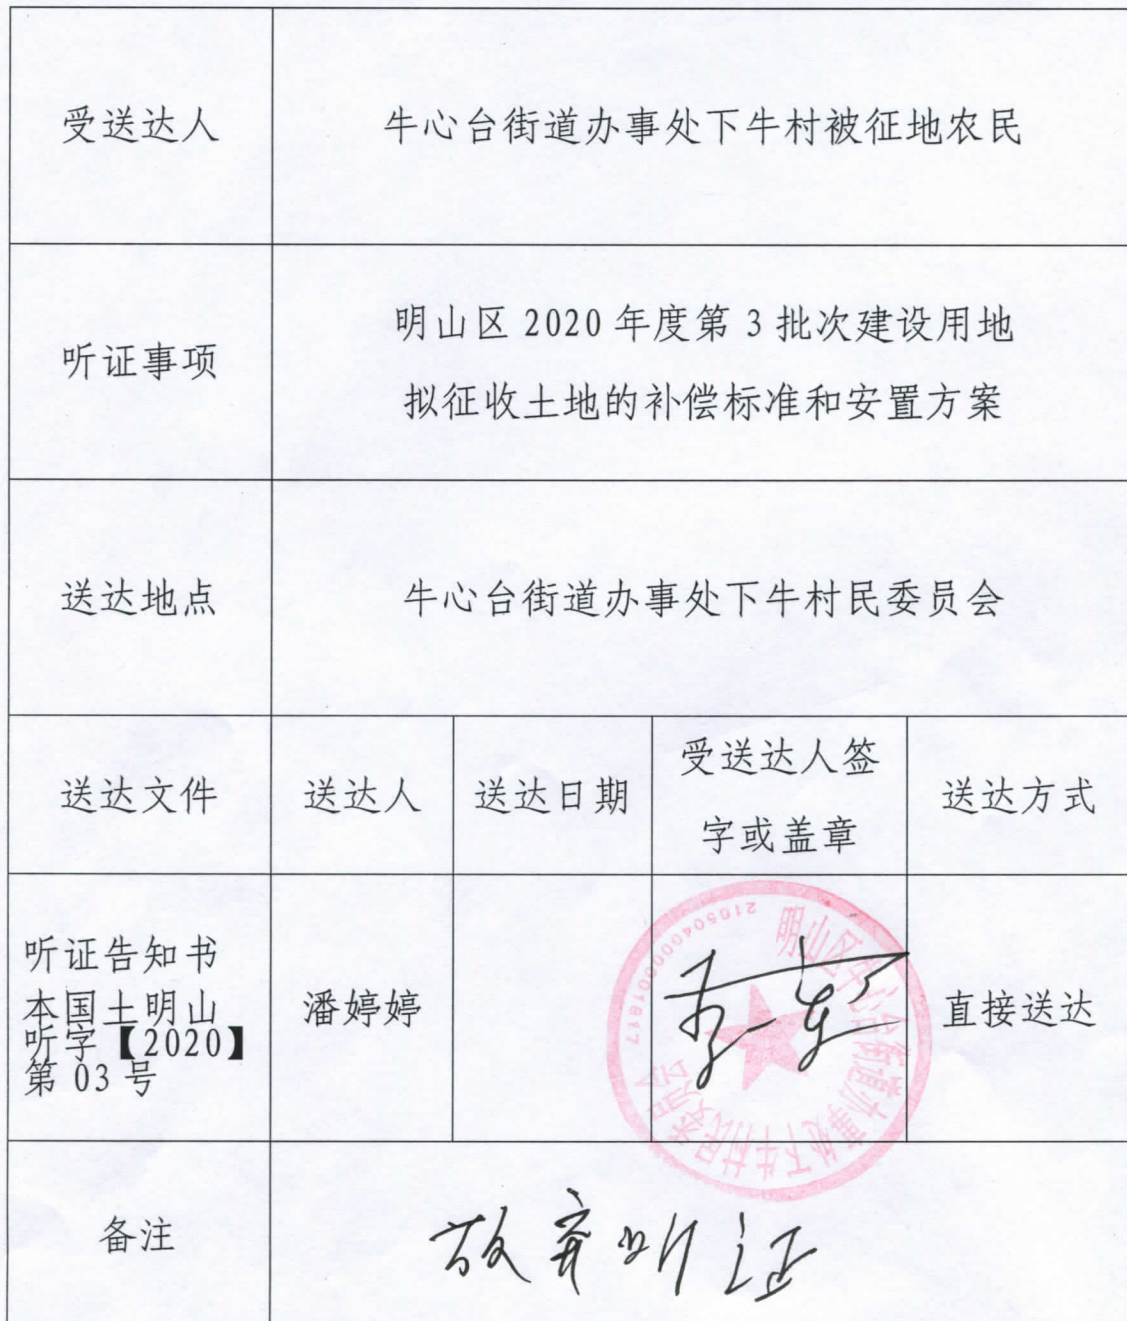 受送达人
牛心台街道办事处下牛村被征地农民
听证事项
明山区 2020 年度第 3 批次建设用地
拟征收土地的补偿标准和安置方案
送达地点
牛心台街道办事处下牛村民委员会
送达文件
送达人
送达日期
受送达人签
字或盖章
送达方式
听证告知书
本国土明山
听字【2020】
第 03 号
潘婷婷
明山区牛心台街道办事处下牛村民委员会
21050400001817
直接送达
备注
放弃听证